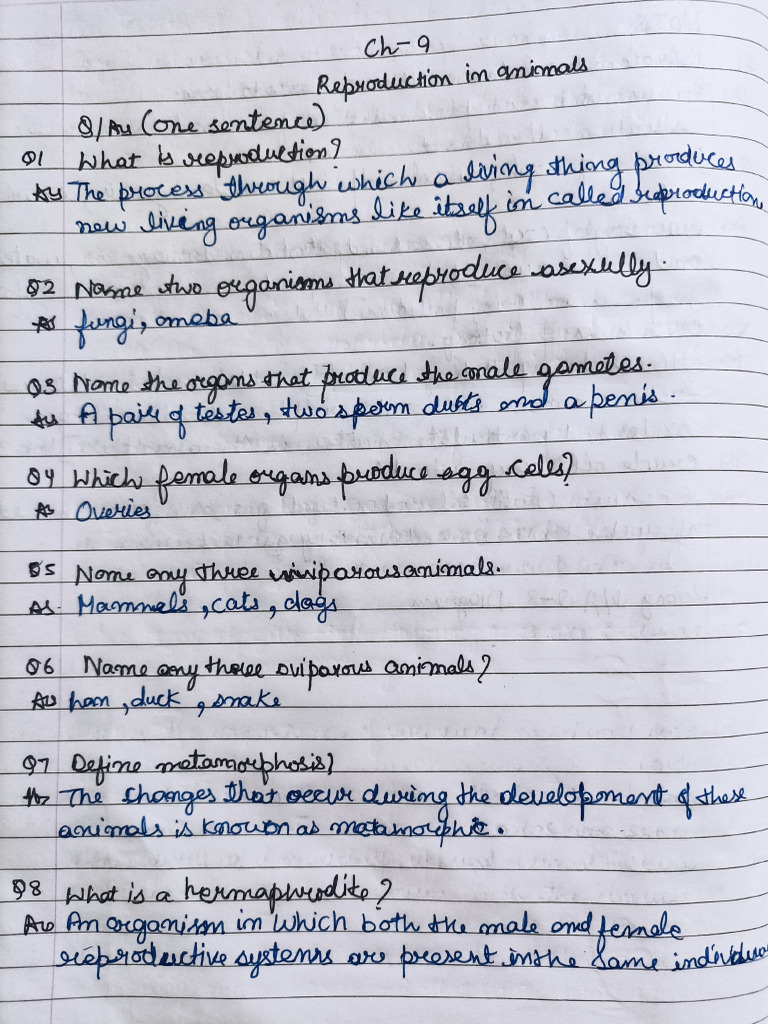 Ch-9
Reproduction in animals
Q/Ans (one sentence)
Q1 What is reproduction?
Ans The process through which a living thing produces
new living organisms like itself im called reproduction
Q2 Name two organisms that reproduce asexully.
As fungi, omeba
Q3 Name the organs that produce the male gametes.
Ans A pair of testes, two sperm dubts and a penis.
Q4 Which female organs produce egg celes?
As Overies
Q5 Name any three viviparous animals.
As. Mammels, cats, dogs
Q6 Name any three oviparous animals?
Ans hen, duck, snake
Q7 Define metamorphosis?
As The changes that occur during the development of these
animals is known as metamorphic.
Q8 What is a hermaphrodite?
Ans An organism in which both the male and female
reproductive systems are present in the same individua